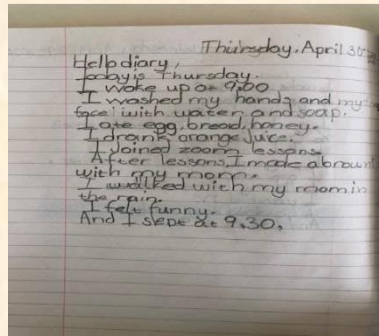 Thursday, April 30
Hello diary,
Today is Thursday.
I woke up at 9.00
I washed my hands and my
face with water and soap.
I ate egg, bread, honey.
I drank orange juice.
I joined zoom lessons
After lessons, I made a brown
with my mom.
I walked with my mom in
the rain.
I felt funny.
And I slept at 9.30.